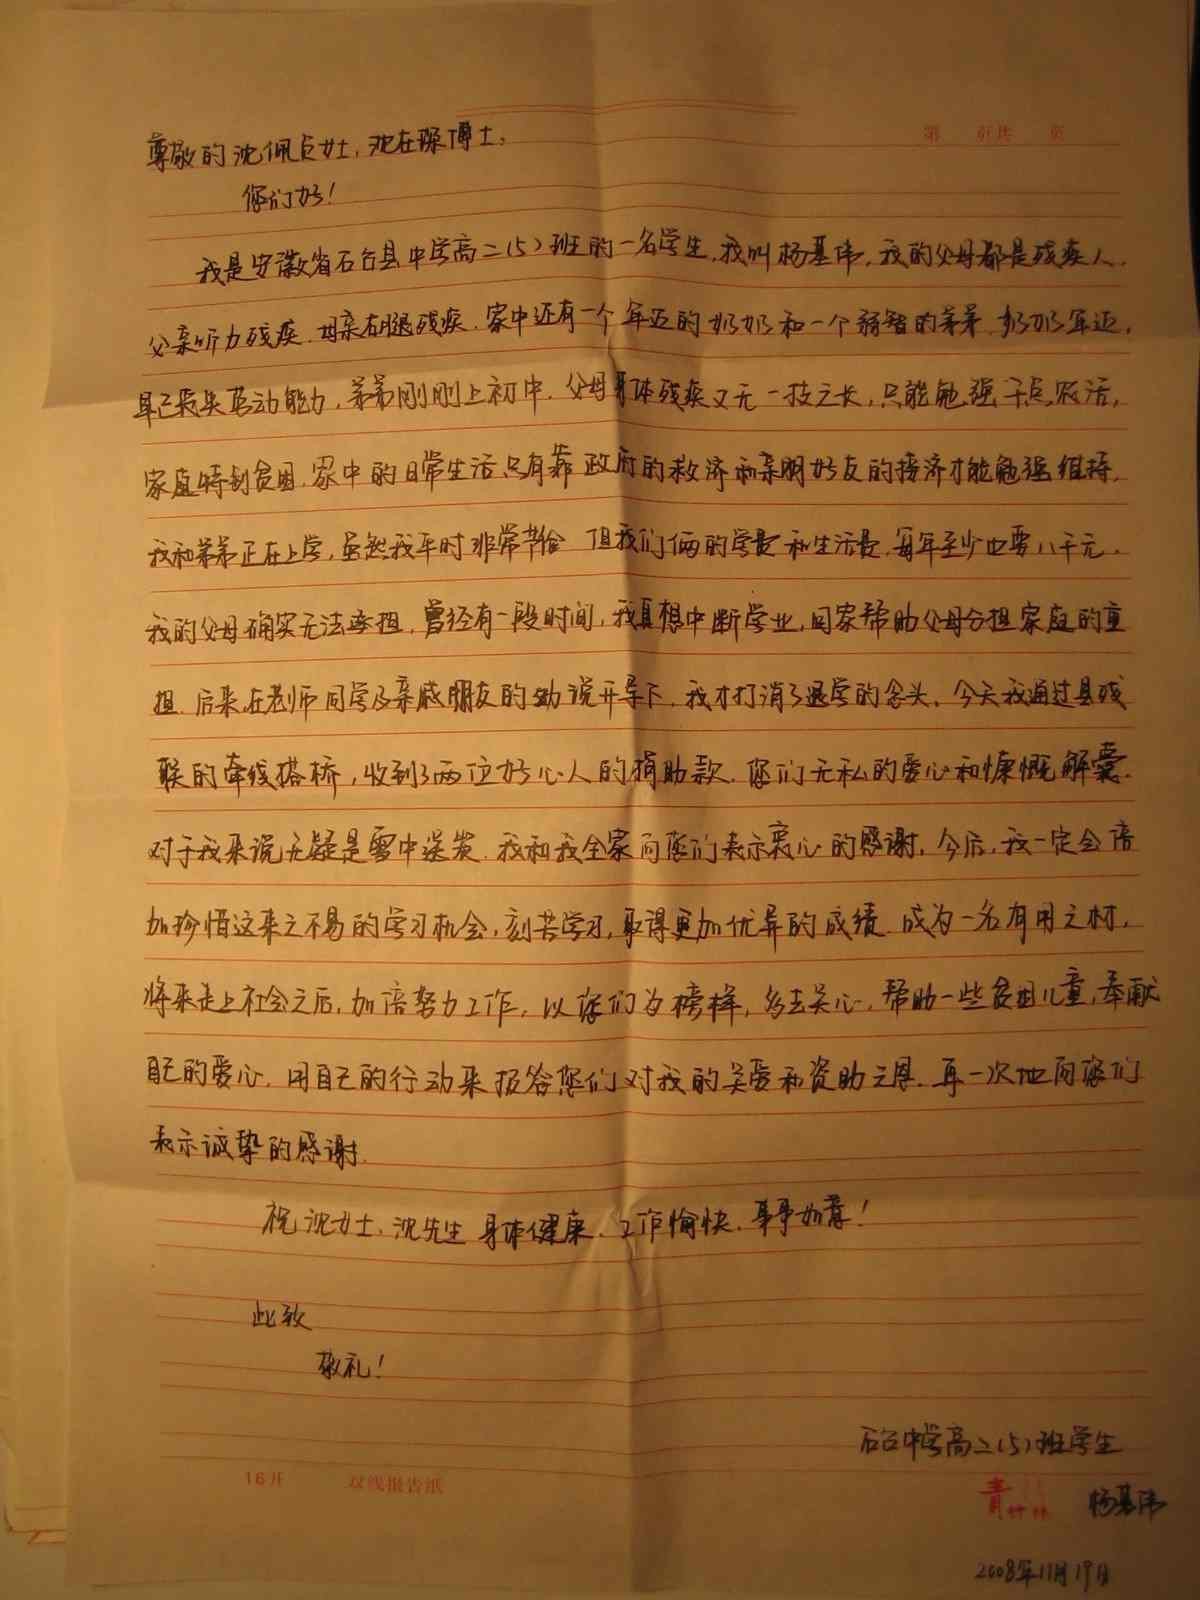 第 页共 页
尊敬的沈佩贞女士，沈在琛博士：
您们好！
我是安徽省石台县中学高二（5）班的一名学生，我叫杨基伟，我的父母都是残疾人，
父亲听力残疾，母亲右腿残疾，家中还有一个年迈的奶奶和一个弱智的弟弟，奶奶年迈，
早已丧失劳动能力，弟弟刚刚上初中，父母身体残疾又无一技之长，只能勉强干点农活，
家庭特别贫困，家中的日常生活只有靠政府的救济和亲朋好友的接济才能勉强维持，
我和弟弟正在上学，虽然我平时非常节俭 但我们俩的学费和生活费，每年至少也要八千元，
我的父母确实无法承担，曾经有一段时间，我真想中断学业，回家帮助父母分担家庭的重
担，后来在老师同学及亲戚朋友的劝说开导下，我才打消了退学的念头。今天我通过县残
联的牵线搭桥，收到了两位好心人的捐助款，您们无私的爱心和慷慨解囊，
对于我来说无疑是雪中送炭，我和我全家向您们表示衷心的感谢，今后，我一定会倍
加珍惜这来之不易的学习机会，刻苦学习，取得更加优异的成绩，成为一名有用之材，
将来走上社会之后，加倍努力工作，以您们为榜样，多去关心，帮助一些贫困儿童，奉献
自己的爱心，用自己的行动来报答您们对我的关爱和资助之恩，再一次地向您们
表示诚挚的感谢，
祝沈女士、沈先生 身体健康、工作愉快、事事如意！
此致
敬礼！
石台中学高二（5）班学生
16开 双线报告纸
青竹林 杨基伟
2008年11月19日